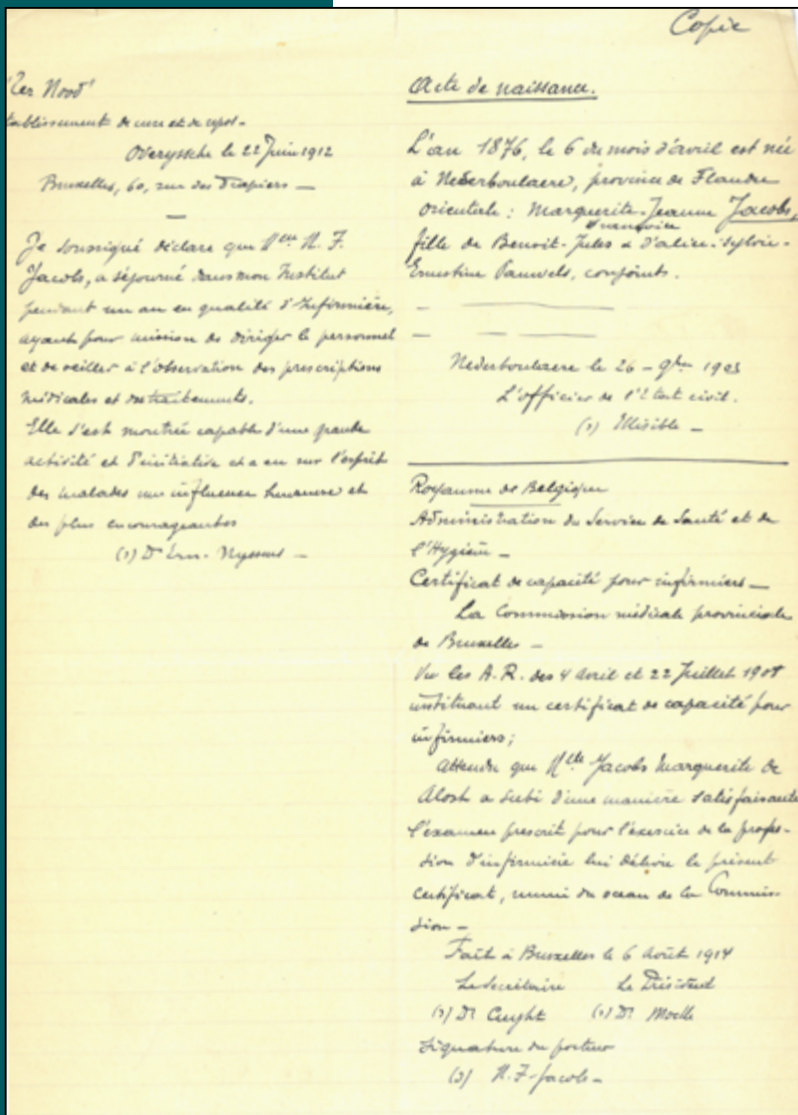 Copie
'Ter Nood'
Etablissement de cure et de repos -
Overyssche le 22 Juin 1912
Bruxelles, 60, rue des Drapiers —
Je soussigné déclare que Melle M. F.
Jacobs, a séjourné dans mon Institut
pendant un an en qualité d'Infirmière,
ayant pour mission de diriger le personnel
et de veiller à l'observation des prescriptions
médicales et des traitements.
Elle s'est montrée capable d'une grande
activité et d'initiative et a eu sur l'esprit
des malades une influence heureuse et
des plus encourageantes
(s) Dr Ern. Nyssens —
Acte de naissance.
L'an 1876, le 6 du mois d'avril est née
à Nederboulaere, province de Flandre
orientale : Marguerite-Jeanne Jacobs,
Françoise
fille de Benoit-Jules & d'Alice-Sylvie-
Ernestine Pauwels, conjoints.
Nederboulaere le 26 - 9bre 1923
L'officier de l'Etat civil.
(s) Illisible —
Royaume de Belgique
Administration du Service de Santé et de
l'Hygiène —
Certificat de capacité pour infirmiers —
La Commission médicale provinciale
de Bruxelles —
Vu les A.R. des 4 Avril et 22 Juillet 1908
instituant un certificat de capacité pour
infirmiers;
Attendu que Melle Jacobs Marguerite de
Alost a subi d'une manière satisfaisante
l'examen prescrit pour l'exercice de la profes-
sion d'infirmière lui délivre le présent
certificat, muni du sceau de la Commis-
sion —
Fait à Bruxelles le 6 Août 1914
Le Secrétaire Le Président
(s) Dr Cuyht (s) Dr Moelle
Signature du porteur
(s) M. F. Jacobs —